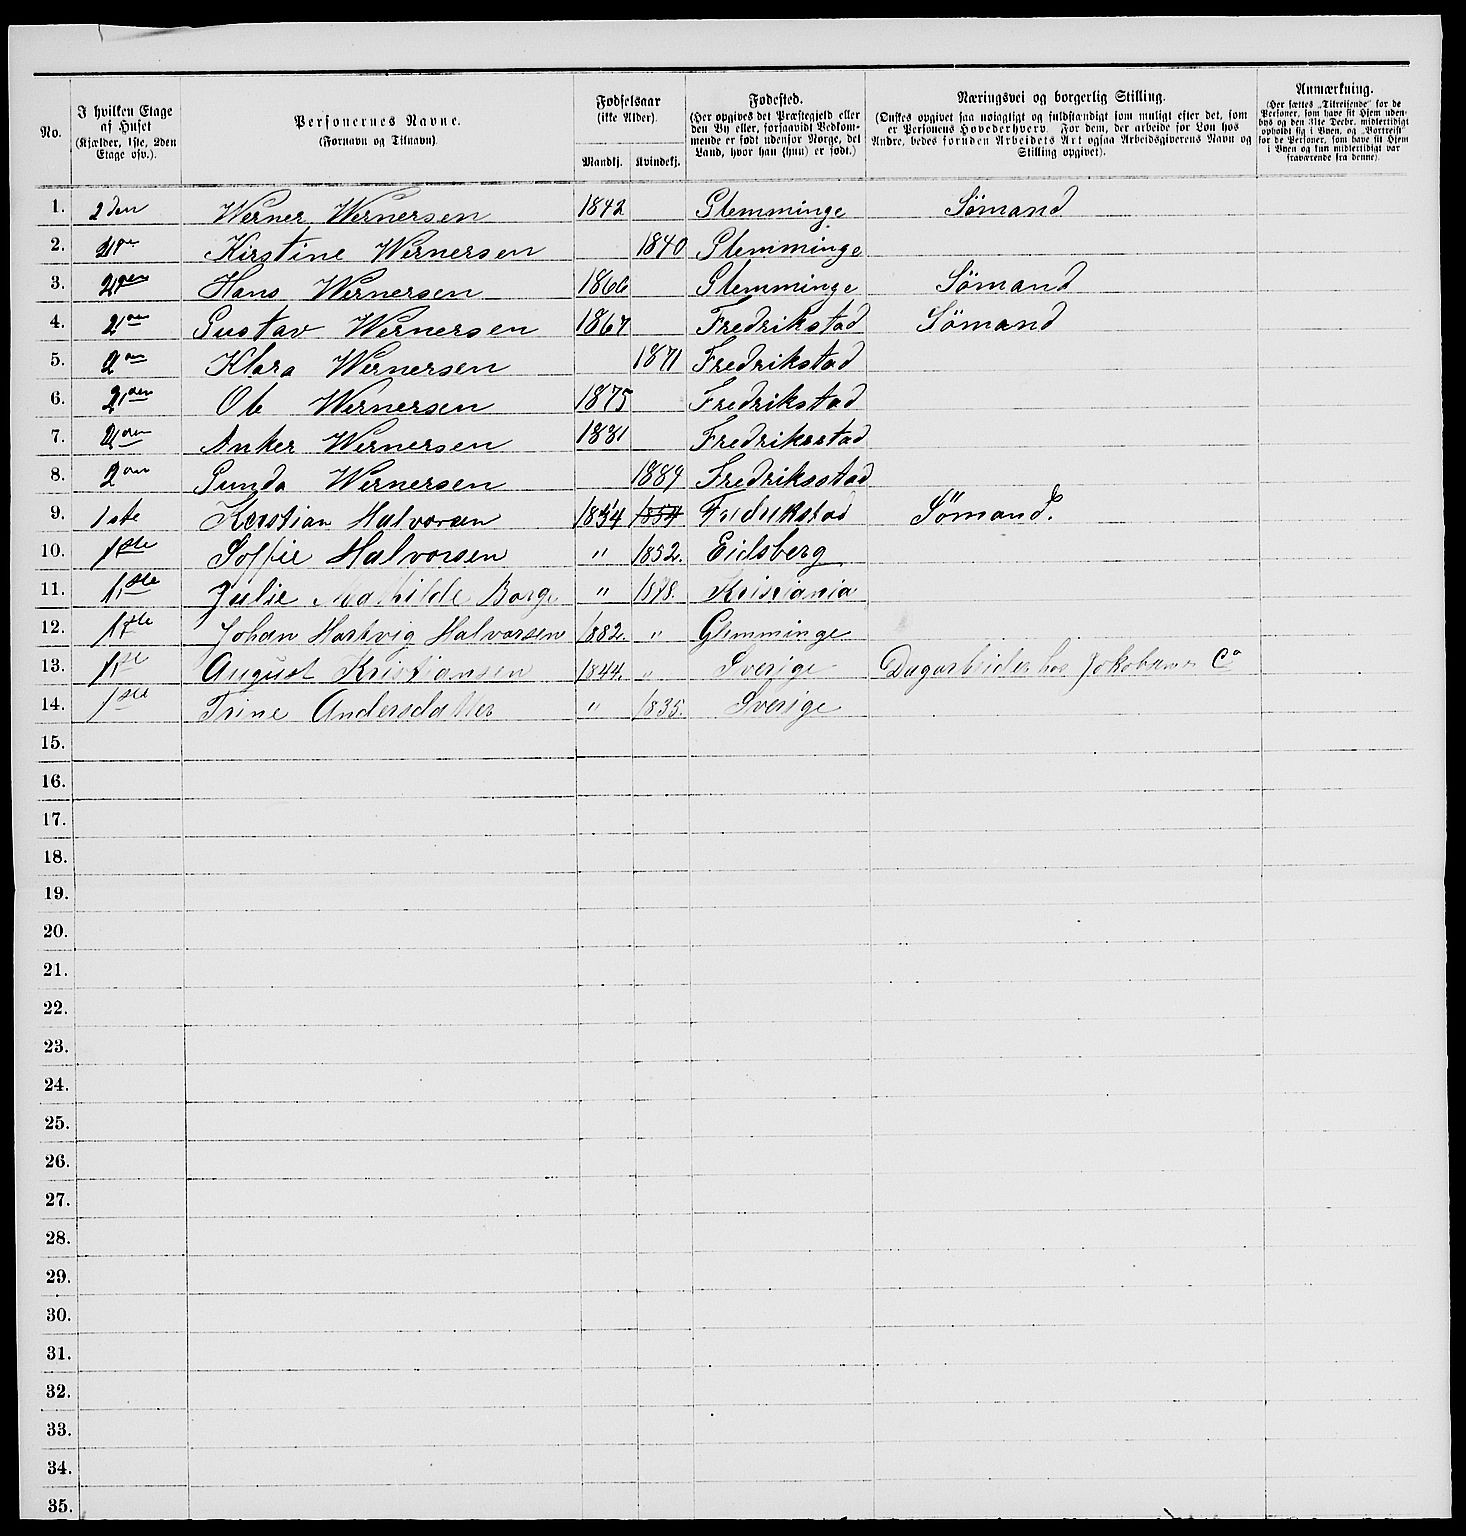 No.
I hvilken Etage af Huset (Kjælder, 1ste, 2den Etage osv.).
Personernes Navne. (Fornavn og Tilnavn)
Fødselsaar (ikke Alder). Mandkj. Kvindekj.
Fødested. (Her opgives det Præstegjeld eller den By eller, forsaavidt Vedkommende er født udenfor Norge, det Land, hvor han (hun) er født.)
Næringsvei og borgerlig Stilling. (Ønskes opgivet saa nøiagtigt og fuldstændigt som muligt efter det, som er Personens Hovederhverv. For dem, der arbeide for Løn hos Andre, bedes foruden Arbeidets Art ogsaa Arbeidsgiverens Navn og Stilling opgivet).
Anmærkning. (Her sættes „Tilreisende“ for de Personer, som have sit Hjem udenbys og den 31te Decbr. midlertidigt opholdt sig i Byen, og „Bortreist“ for de Personer, som have sit Hjem i Byen og kun midlertidigt var fraværende fra denne)
1. 2den Werner Wernersen 1842 Glemminge Sømand
2. 2den Kirstine Wernersen 1840 Glemminge
3. 2den Hans Wernersen 1866 Glemminge Sömand
4. 2den Gustav Wernersen 1867 Fredrikstad Sömand
5. 2den Klara Wernersen 1871 Fredrikstad
6. 2den Ole Wernersen 1875 Fredrikstad
7. 2den Anker Wernersen 1881 Fredriksstad
8. 2den Gunda Wernersen 1884 Fredriksstad
9. 1ste Kerstian Halvorsen 1854 1854 Fredrikstad Sömand.
10. 1ste Soffie Halvorsen " 1852. Eidsberg
11. 1ste Julie Mathilde Borge " 1878. Kristiania
12. 1ste Johan Hartvig Halvorsen 1882. " Glemminge
13. 1ste August Kristiansen 1844. " Sverige Dagarbeider hos Co
14. 1ste Trine Andersdatter " 1835. Sverige
15.
16.
17.
18.
19.
20.
21.
22.
23.
24.
25.
26.
27.
28.
29.
30.
31.
32.
33.
34.
35.